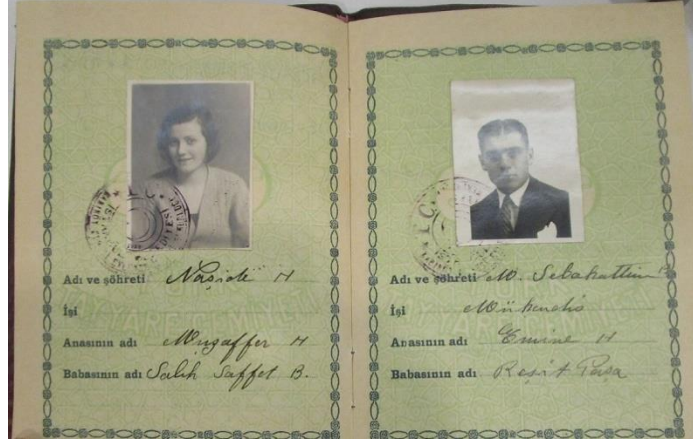 Adı ve şöhreti Naşide H
İşi
Anasının adı Muzaffer H
Babasının adı Salih Saffet B.
Adı ve şöhreti M. Sebahattin B
İşi Mühendis
Anasının adı Emine H
Babasının adı Reşit Paşa
TAYYARE CEMİYETİ
TAYYARE CEMİYETİ
T.C.